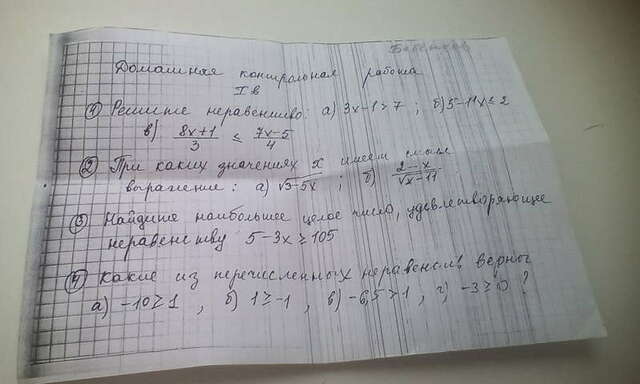 Домашняя контрольная работа
I в
① Решите неравенство: а) 3x-1>7 ; б) 5-11x≤2
в) (8x+1)/3 ≤ (7x-5)/4
② При каких значениях x имеет смысл
выражение: а) √(3-5x) ; б) (2-x)/√(x-11)
③ Найдите наибольшее целое число, удовлетворяющее
неравенству 5-3x≥105
④ Какие из перечисленных неравенств верны
а) -10≥1 , б) 1≥-1 , в) -6,5>1 , г) -3≥0 ?